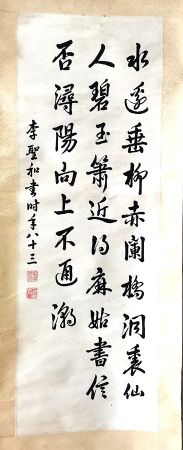 水邊垂柳赤闌橋洞裏仙
人碧玉簫近得麻姑書信
否潯陽向上不通潮
李聖和書時年八十三